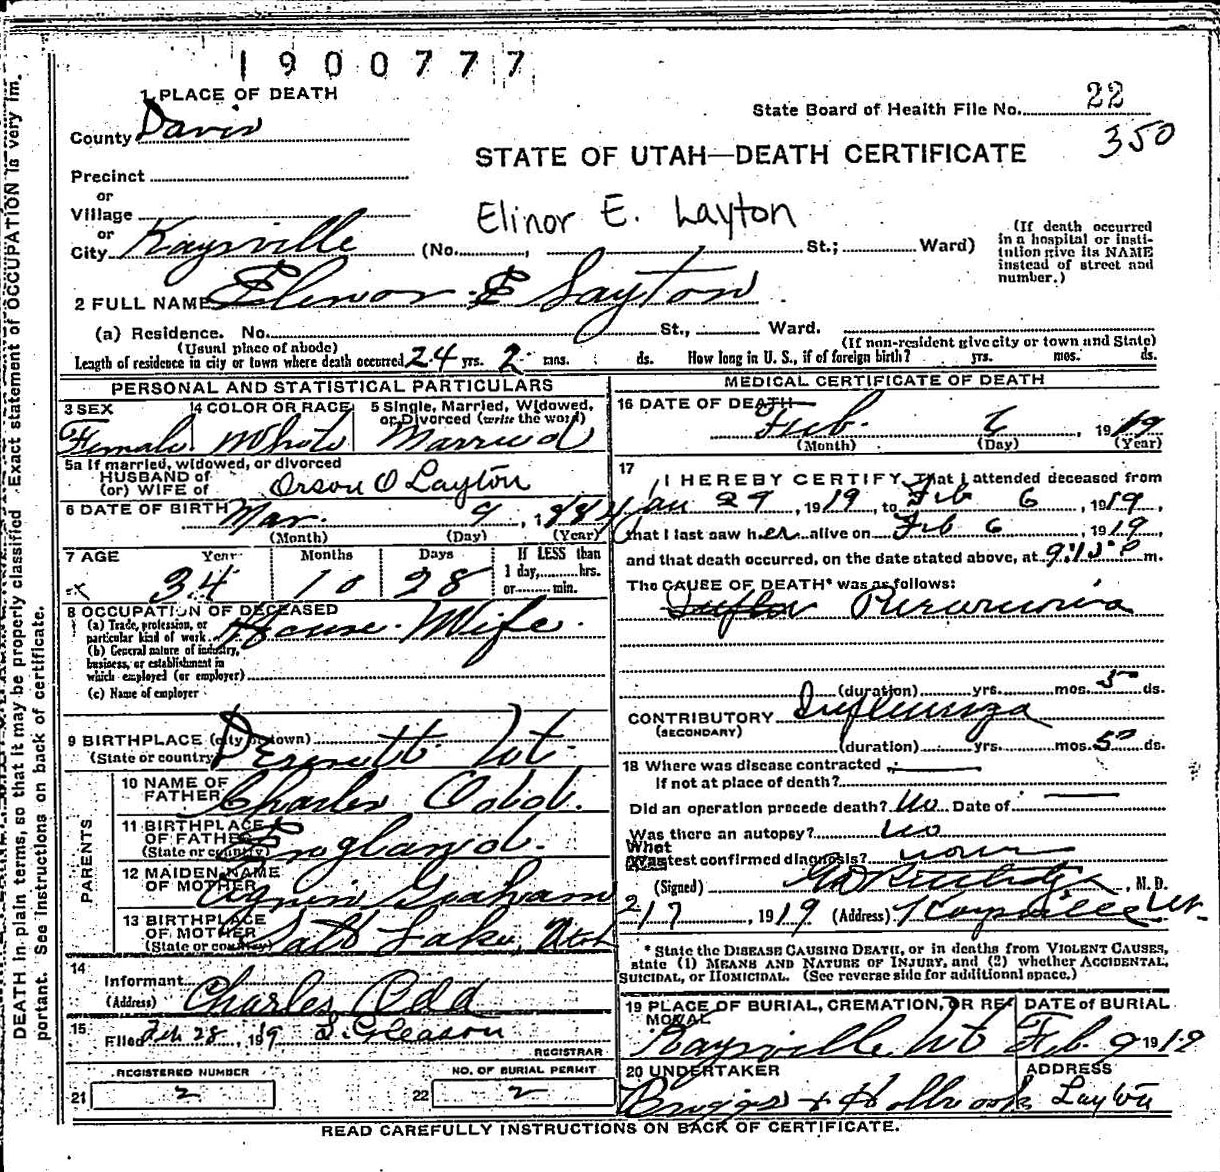 1900777
1 PLACE OF DEATH
State Board of Health File No. 22
County Davis
350
STATE OF UTAH—DEATH CERTIFICATE
Precinct
or
Village
Elinor E. Layton
or
City Kaysville (No. , St.; Ward)
(If death occurred in a hospital or institution give its NAME instead of street and number.)
2 FULL NAME Elenor E Layton
(a) Residence. No. St., Ward.
(Usual place of abode) (If non-resident give city or town and State)
Length of residence in city or town where death occurred 24 yrs. 2 mos. ds. How long in U. S., if of foreign birth? yrs. mos. ds.
PERSONAL AND STATISTICAL PARTICULARS
3 SEX 4 COLOR OR RACE 5 Single, Married, Widowed, or Divorced (write the word)
Female White Married
5a If married, widowed, or divorced
HUSBAND of
(or) WIFE of Orson O Layton
6 DATE OF BIRTH Mar. 9, 1884
(Month) (Day) (Year)
7 AGE Years Months Days If LESS than
34 10 28 1 day, hrs.
or min.
8 OCCUPATION OF DECEASED
(a) Trade, profession, or particular kind of work House Wife
(b) General nature of industry, business, or establishment in which employed (or employer)
(c) Name of employer
9 BIRTHPLACE (city or town)
(State or country) Ut.
10 NAME OF FATHER Charles Odd.
11 BIRTHPLACE OF FATHER
(State or country) England.
12 MAIDEN NAME OF MOTHER Graham
13 BIRTHPLACE OF MOTHER
(State or country) Salt Lake, Utah
PARENTS
14
Informant
(Address) Charles Odd
15
Filed Feb 28, 1919 Gleason
REGISTRAR
REGISTERED NUMBER NO. OF BURIAL PERMIT
21 2 22 2
MEDICAL CERTIFICATE OF DEATH
16 DATE OF DEATH
Feb. 6, 1919
(Month) (Day) (Year)
17
I HEREBY CERTIFY, That I attended deceased from
Jan 29, 1919, to Feb 6, 1919,
that I last saw her alive on Feb 6, 1919,
and that death occurred, on the date stated above, at 9:15 P m.
The CAUSE OF DEATH* was as follows:
Pneumonia
(duration) yrs. mos. 5 ds.
CONTRIBUTORY Influenza
(SECONDARY)
(duration) yrs. mos. 5 ds.
18 Where was disease contracted
If not at place of death?
Did an operation precede death? No Date of
Was there an autopsy? no
What test confirmed diagnosis? none
(Signed) , M. D.
2/7, 1919 (Address) Kaysville Ut.
* State the DISEASE CAUSING DEATH, or in deaths from VIOLENT CAUSES,
state (1) MEANS AND NATURE OF INJURY, and (2) whether ACCIDENTAL,
SUICIDAL, or HOMICIDAL. (See reverse side for additional space.)
19 PLACE OF BURIAL, CREMATION, OR REMOVAL DATE of BURIAL
Kaysville Ut Feb. 9 1919
20 UNDERTAKER ADDRESS
Briggs & Holbrook Layton
READ CAREFULLY INSTRUCTIONS ON BACK OF CERTIFICATE.
DEATH in plain terms, so that it may be properly classified. Exact statement of OCCUPATION is very im-
portant. See instructions on back of certificate.